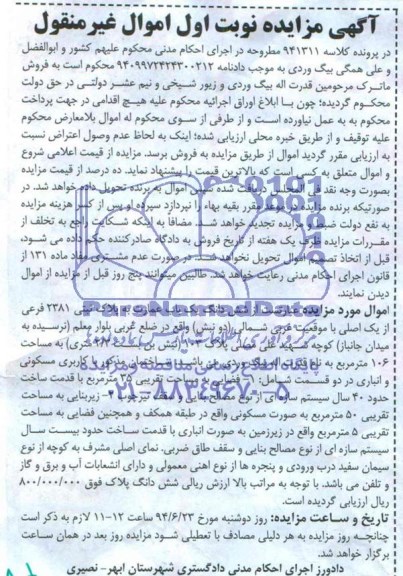 آگهی مزایده نوبت اول اموال غیر منقول
در پرونده کلاسه ۹۴۱۳۱۱ مطروحه در اجرای احکام مدنی محکوم علیهم کشور و ابوالفضل
و علی همگی بیگ وردی به موجب دادنامه ۹۴۰۹۹۷۲۴۲۴۳۰۰۲۱۲ محکوم است به فروش
ماترک مرحومین قدرت اله بیگ وردی و زیور شیخی و نیم عشر دولتی در حق دولت
محکوم گردیده؛ چون با ابلاغ اوراق اجرائیه محکوم علیه هیچ اقدامی در جهت پرداخت
محکوم به به عمل نیاورده است و از طرفی از سوی محکوم له اموال بلامعارض محکوم
علیه توقیف و از طریق خبره محلی ارزیابی شده؛ اینک به لحاظ عدم وصول اعتراض نسبت
به ارزیابی مقرر گردید اموال از طریق مزایده به فروش برسد. مزایده از قیمت اعلامی شروع
و اموال متعلق به کسی است که بالاترین قیمت را پیشنهاد نماید. ده درصد از قیمت مزایده
بصورت وجه نقد فی المجلس دریافت شده اموال به برنده تحویل داده خواهد شد. در
صورتیکه برنده مزایده در موعد مقرر بقیه بهاء را نپردازد سپرده او پس از کسر هزینه مزایده
به نفع دولت ضبط و مزایده تجدید خواهد شد. مضافا به اینکه شکایت راجع به تخلف از
مقررات مزایده ظرف یک هفته از تاریخ فروش به دادگاه صادرکننده حکم داده می شود،
قبل از اتخاذ تصمیم اموال تحویل نخواهد شد. در صورت عدم مشتری مفاد ماده ۱۳۱ از
قانون اجرای احکام مدنی رعایت خواهد شد. طالبین میتوانند پنج روز قبل از مزایده از اموال
دیدن نمایند.
اموال مورد مزایده عبارتست از شش دانگ یک باب ساختمان به پلاک ثبتی ۲۳۸۱ فرعی
از یک اصلی با موقعیت غربی شمالی (دو نبش) واقع در ضلع غربی بلوار معلم (نرسیده به
میدان جانباز) کوچه شهید علی فضلی پلاک متری) به مساحت
۱۰۶ مترمربع به نام قدرت اله بیگ وردی می باشد. ساختمان مذکور با کاربری مسکونی
و انباری در دو قسمت شامل: ۱- فضایی تقریبی ۳۵ مترمربع با قدمت ساخت
حدود ۴۰ سال سیستم سازه ای از نوع مصالح بنایی و سقف تیرچوبی ۲- زیربنایی به مساحت
تقریبی ۵۰ مترمربع به صورت مسکونی واقع در طبقه همکف و همچنین فضایی به مساحت
تقریبی ۵ مترمربع واقع در زیرزمین به صورت انباری با قدمت ساخت حدود بیست سال
سیستم سازه ای از نوع مصالح بنایی و سقف طاق ضربی. نمای اصلی مشرف به کوچه از نوع
سیمان سفید درب ورودی و پنجره ها از نوع اهنی معمولی و دارای انشعابات آب و برق و گاز
و تلفن می باشد. با توجه به مراتب بالا ارزش ریالی شش دانگ پلاک فوق ۸۰۰/۰۰۰/۰۰۰
ریال ارزیابی گردیده است.
تاریخ و ساعت مزایده: روز دوشنبه مورخ ۹۴/۶/۲۳ ساعت ۱۲-۱۱ لازم به ذکر است
چنانچه روز مزایده به هر دلیلی مصادف با تعطیلی شود مزایده روز بعد در همان ساعت
برگزار خواهد شد.
دادورز اجرای احکام مدنی دادگستری شهرستان ابهر- نصیری
ParsNamadData
۰۲۱-۸۸۳۴۹۶۷۰-۵